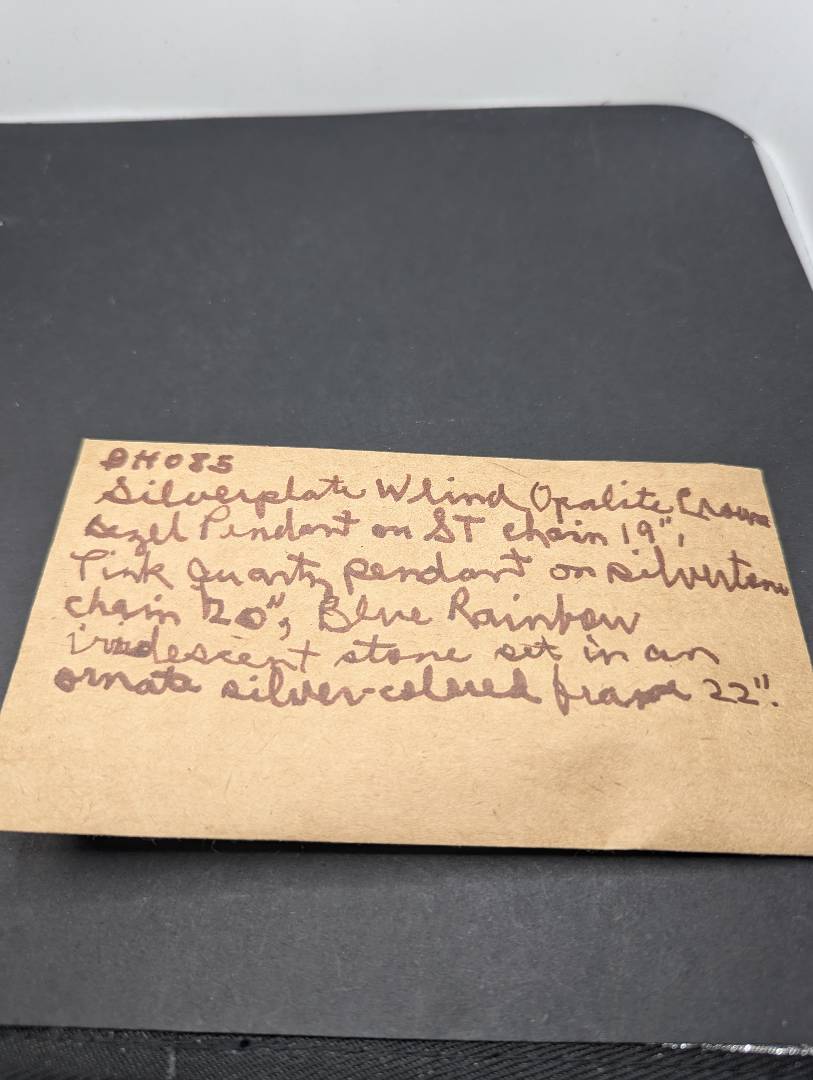 DH085
Silverplate Wlind Opalite Crown
Bezel Pendant on ST chain 19",
Pink Quartz pendant on silvertone
chain 20", Blue Rainbow
iridescent stone set in an
ornate silver-colored frame 22".